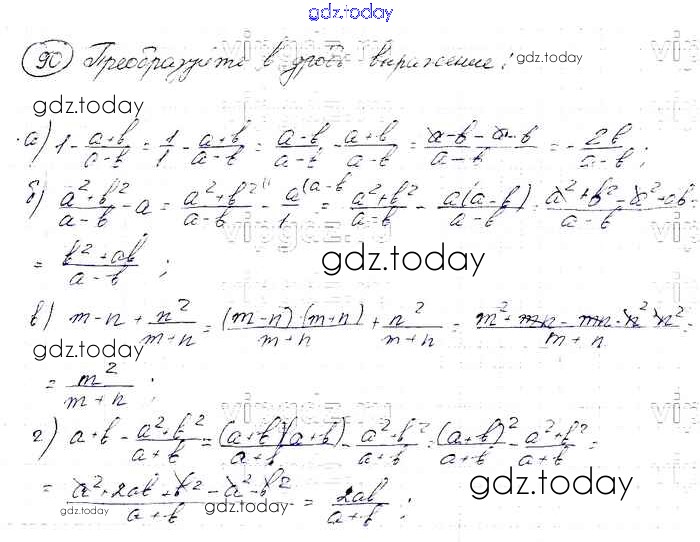 gdz.today
90 Преобразуйте в дробь выражение:
gdz.today
gdz.today
а) 1 - (a+b)/(a-b) = 1/1 - (a+b)/(a-b) = (a-b)/(a-b) - (a+b)/(a-b) = (a-b-a-b)/(a-b) = - 2b/(a-b);
б) (a²+b²)/(a-b) - a = (a²+b²)/(a-b) - a/1 = (a²+b²)/(a-b) - a(a-b)/(a-b) = (a²+b²-a²+ab)/(a-b) =
= (b²+ab)/(a-b);
gdz.today
в) m-n + n²/(m+n) = (m-n)(m+n)/(m+n) + n²/(m+n) = (m²+mn-mn-n²+n²)/(m+n) =
gdz.today
= m²/(m+n);
г) a+b - (a²+b²)/(a+b) = (a+b)(a+b)/(a+b) - (a²+b²)/(a+b) = (a+b)²/(a+b) - (a²+b²)/(a+b) =
= (a²+2ab+b²-a²-b²)/(a+b) = 2ab/(a+b);
gdz.today
gdz.today